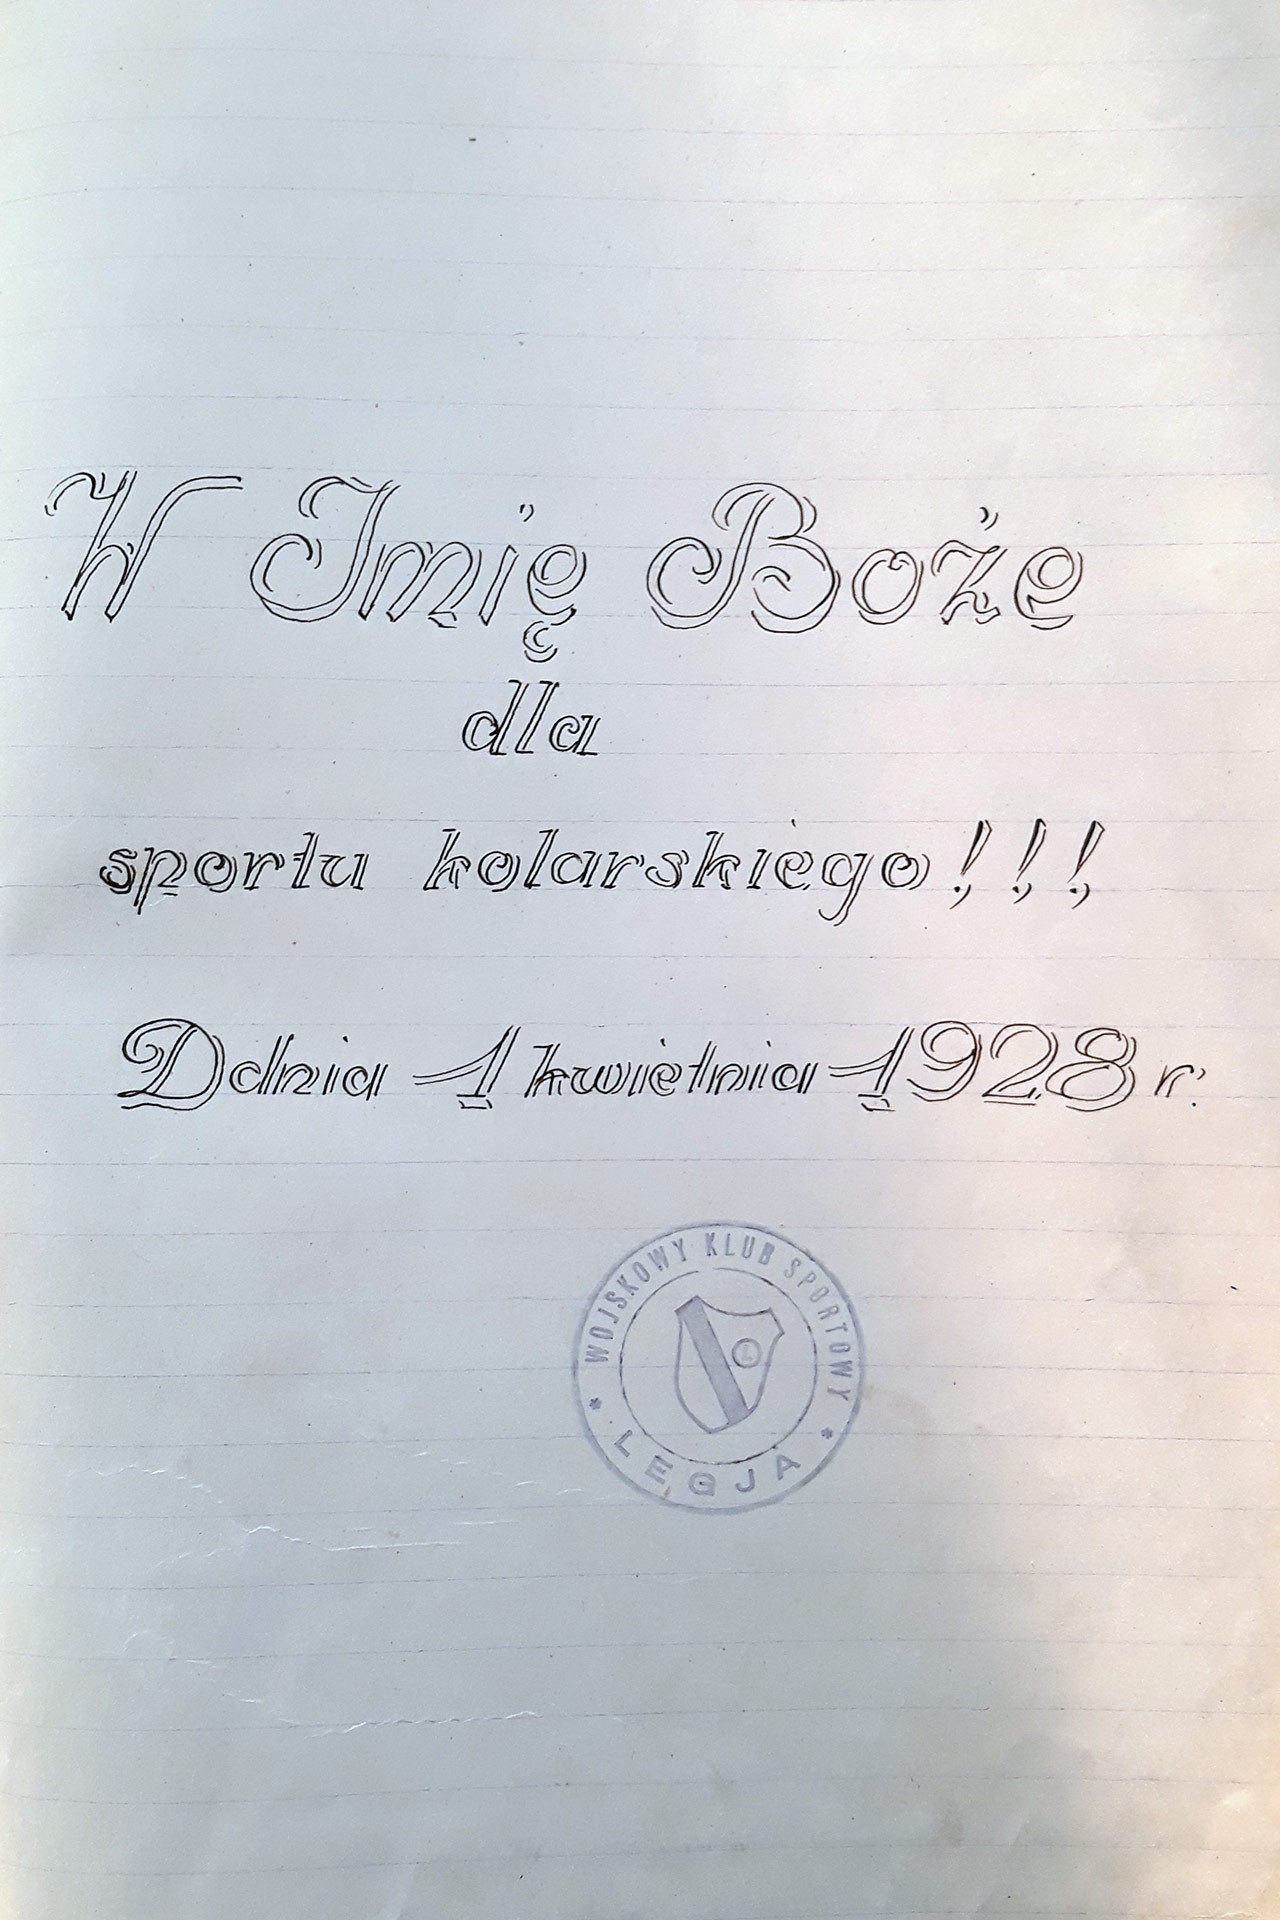 W Imię Boże
dla
sportu kolarskiego!!!
Ddnia 1 kwietnia 1928 r.
WOJSKOWY KLUB SPORTOWY
* LEGJA *